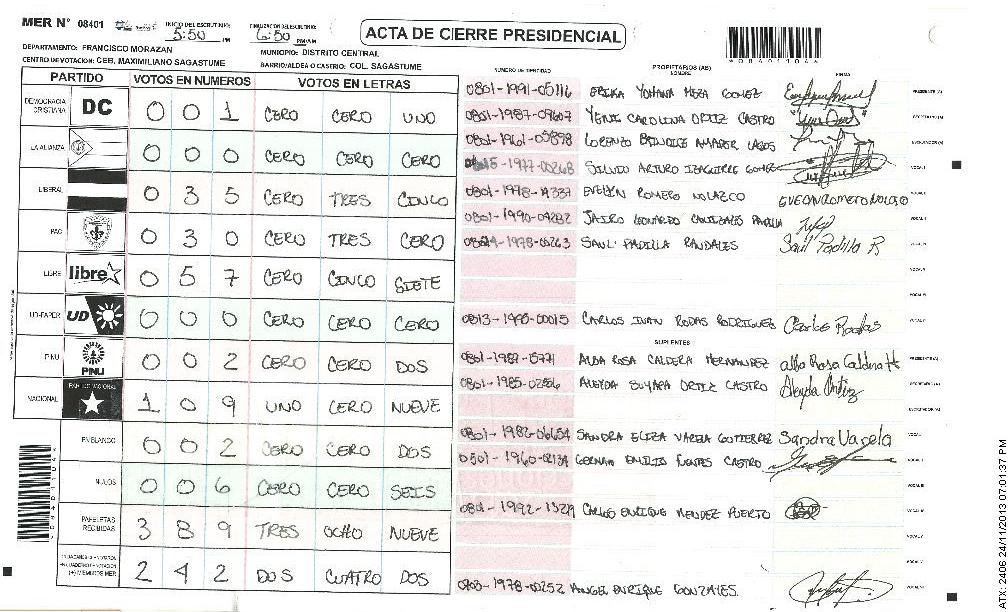 MER N° 08401
INICIO DEL ESCRUTINIO: 5:50 PM
FINALIZACION DEL ESCRUTINIO: 6:50 PM/AM
ACTA DE CIERRE PRESIDENCIAL
DEPARTAMENTO: FRANCISCO MORAZAN
MUNICIPIO: DISTRITO CENTRAL
CENTRO DE VOTACION: CEB. MAXIMILIANO SAGASTUME
BARRIO/ALDEA O CASERIO: COL. SAGASTUME
PARTIDO VOTOS EN NUMEROS VOTOS EN LETRAS
DEMOCRACIA CRISTIANA DC 0 0 1 CERO CERO UNO
LA ALIANZA 0 0 0 CERO CERO CERO
LIBERAL 0 3 5 CERO TRES CINCO
PAC 0 3 0 CERO TRES CERO
LIBRE libre 0 5 7 CERO CINCO SIETE
UD-FAPER UD 0 0 0 CERO CERO CERO
PINU PINU 0 0 2 CERO CERO DOS
NACIONAL PARTIDO NACIONAL 1 0 9 UNO CERO NUEVE
EN BLANCO 0 0 2 CERO CERO DOS
NULOS 0 0 6 CERO CERO SEIS
PAPELETAS RECIBIDAS 3 8 9 TRES OCHO NUEVE
(+) MIEMBROS MER 2 4 2 DOS CUATRO DOS
NUMERO DE IDENTIDAD PROPIETARIOS (AS) NOMBRE FIRMA
0801-1991-05116 ERIKA YOHANA MEZA GOMEZ PRESIDENTE (A)
0801-1987-09607 YENIS CAROLINA ORTIZ CASTRO SECRETARIO (A)
0801-1961-05898 LORENZO AMADOR LAGOS ESCRUTADOR (A)
1977-00268 SILVIO ARTURO IZAGUIRRE GOMEZ VOCAL I
0801-1978- EVELYN ROMERO NOLAZCO VOCAL II
0801-1990-09282 JAIRO LEONARDO PADILLA VOCAL III
1978-00263 SAUL PADILLA RAUDALES Saul Padilla R VOCAL IV
VOCAL V
VOCAL VI
0813-1990-00015 CARLOS IVAN RODAS RODRIGUEZ Carlos Rodas VOCAL
SUPLENTES
0801-1982- ALDA ROSA CALDERA HERNANDEZ PRESIDENTE (A)
0801-1985-02856 ALEYDA SUYAPA ORTIZ CASTRO Aleyda Ortiz SECRETARIO (A)
ESCRUTADOR (A)
0801-1982-06654 SANDRA ELIZA VARELA GUTIERREZ Sandra Varela VOCAL I
0501-1960- GERMAN EMILIO FUENTES CASTRO VOCAL II
VOCAL III
0801-1992- CARLOS ENRIQUE MENDEZ PUERTO VOCAL IV
VOCAL V
VOCAL VI
1978-00252 ANGEL ENRIQUE GONZALES
2406 24/11/2013 07:01:37 PM